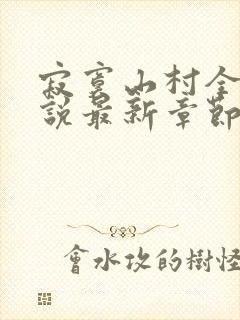 寂寞山村全
說最新章節
會水攻的樹怪